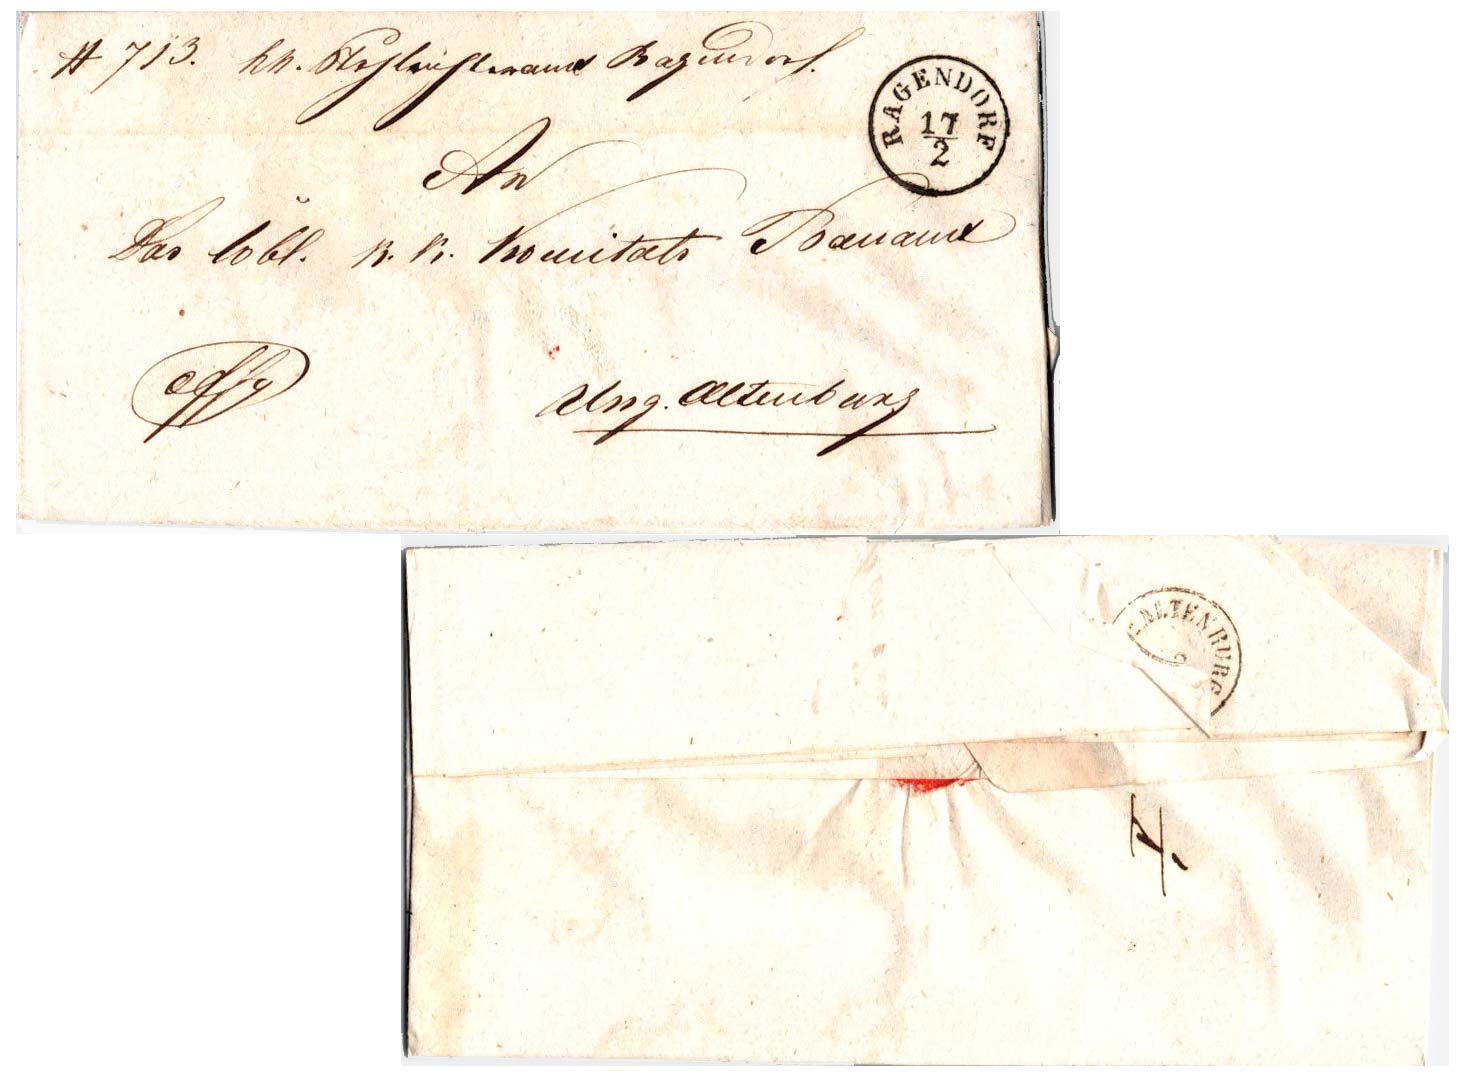 # 713. kk. Stuhlrichteramt Ragendorf.
RAGENDORF
17
2
An
Das löbl. K. K. Komitats Bauamt
Ung. Altenburg
ALTENBURG